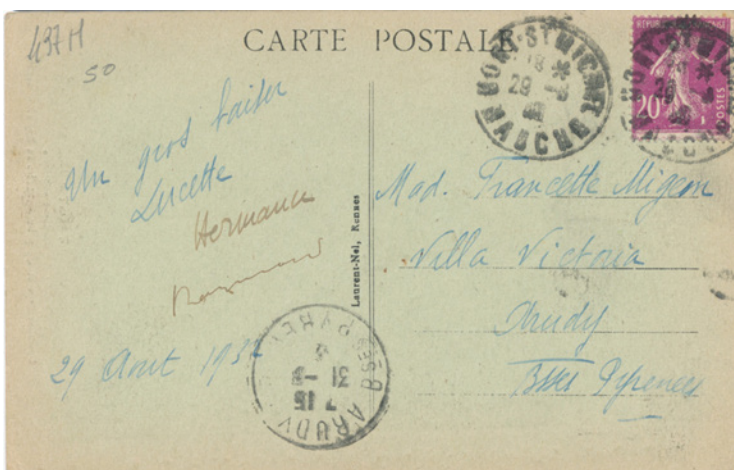 437 M
50
CARTE POSTALE
MONT-ST MICHEL
29 -8
MANCHE
20
POSTES
Un gros baiser
Lucette
Hermance
Raymond
29 Aout 193
Laurent-Nel, Rennes
Mad. Francette Migeon
Villa Victoria
Arudy
Bses Pyrenees
ARUDY
31 -8